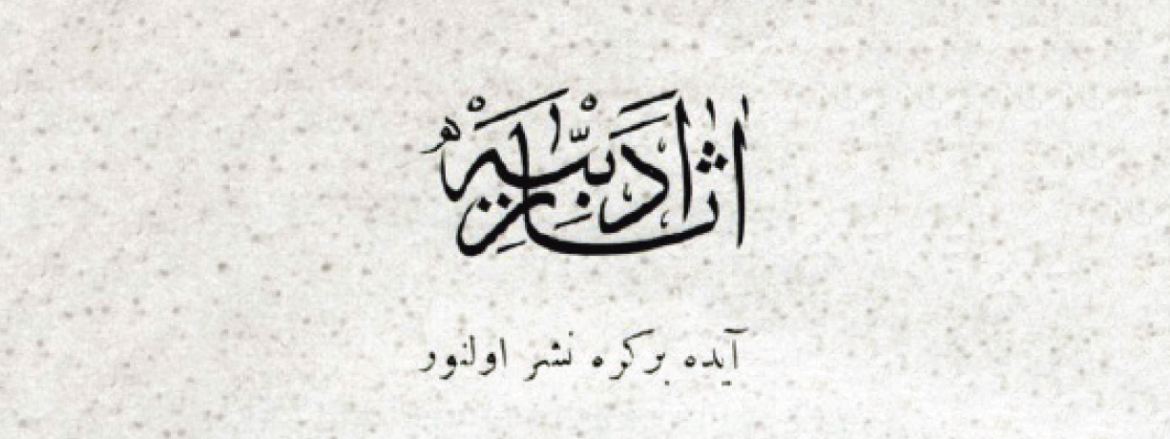 آثار ادبیه
آیده بر کره نشر اولنور